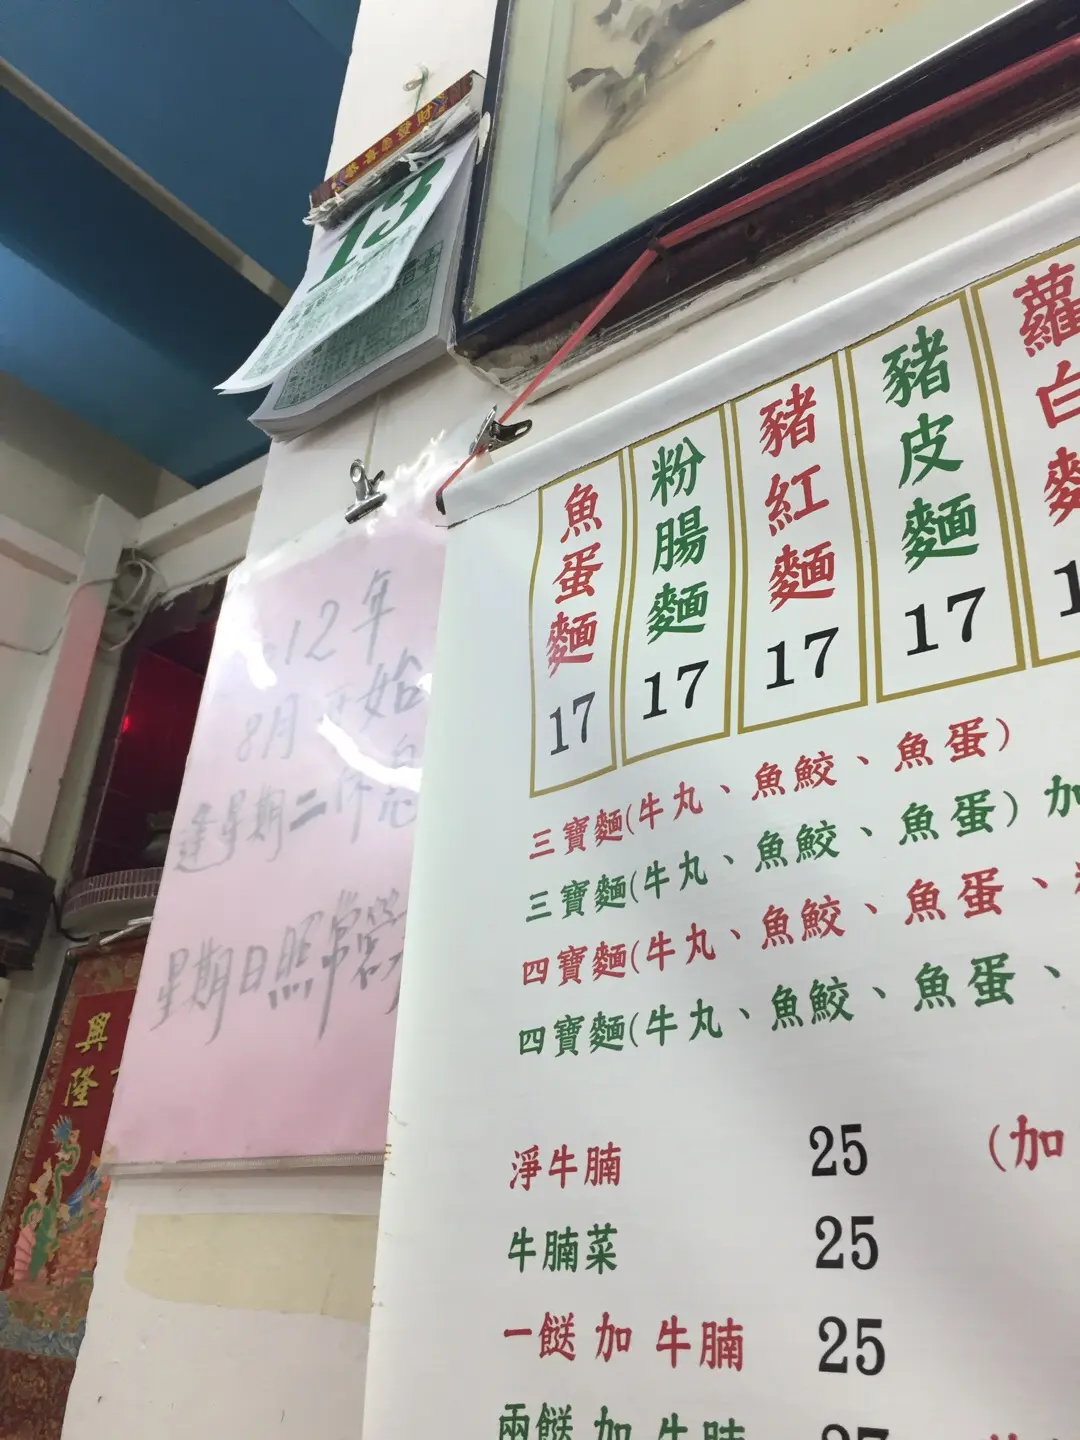 恭喜發財
13
12年
8月開始
逢星期二休息
星期日照常營
興
隆
魚蛋麵 17
粉腸麵 17
豬紅麵 17
豬皮麵 17
蘿白麵 1
三寶麵(牛丸、魚鮫、魚蛋)
三寶麵(牛丸、魚鮫、魚蛋) 加
四寶麵(牛丸、魚鮫、魚蛋、
四寶麵(牛丸、魚鮫、魚蛋、
淨牛腩 25 (加
牛腩菜 25
一餸 加 牛腩 25
兩餸 加 牛腩 27